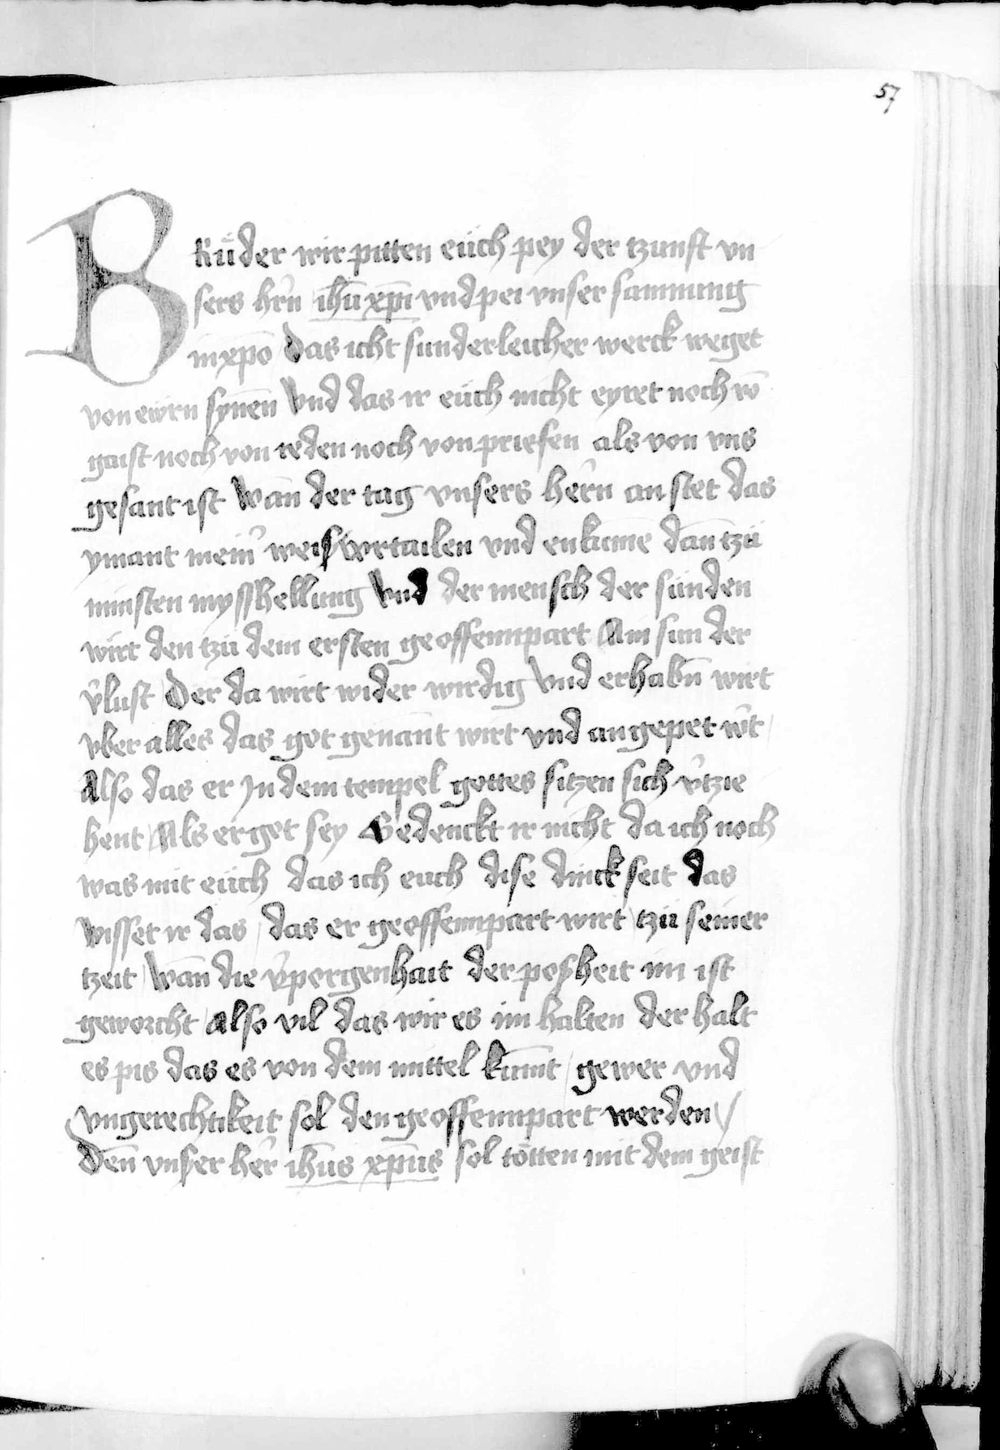 57
Brůder wir pitten eüch pey der tzunft vn
sers hr̄n ih̄u xp̄i vnd pei vnser samnung
in xp̄o das icht sunderleicher werck weget
von ewrn synen̄ Vnd das ir eüch nicht eyret noch vō
gaist noch von reden noch von priefen als von vns
gesant ist Wan̄ der tag vnsers her̄n an stet das
ymant mein̄ weis vertailen vnd enkume dan̄ tzü
minsten mysshellung Vnd der mensch der sünden
wirt den tzü dem ersten geoffennpart Am sun der
v̄lust Der da wirt wider wirdig Vnd erhabn̄ wirt
vber alles das got genan̄t wirt vnd angepet w̄t
Also das er Jn dem tempel gottes sitzen sich v̄tzie
hent / Als er got sey Gedenckt ir nicht da ich noch
was mit eüch das ich euch dise dinck seit das
wisset ir das / das er geoffennpart wirt tzü seiner
tzeit / Wan̄ die v̄porgenhait der posheit im ist
geworcht / Also vil das wir es im halten der halt
es pis das es von dem mittel kum̄t / gewer vnd
vngerechtikeit sol den geoffennpart werden /
Den̄ vnser her̄ ih̄us xp̄us sol tötten mit dem geist